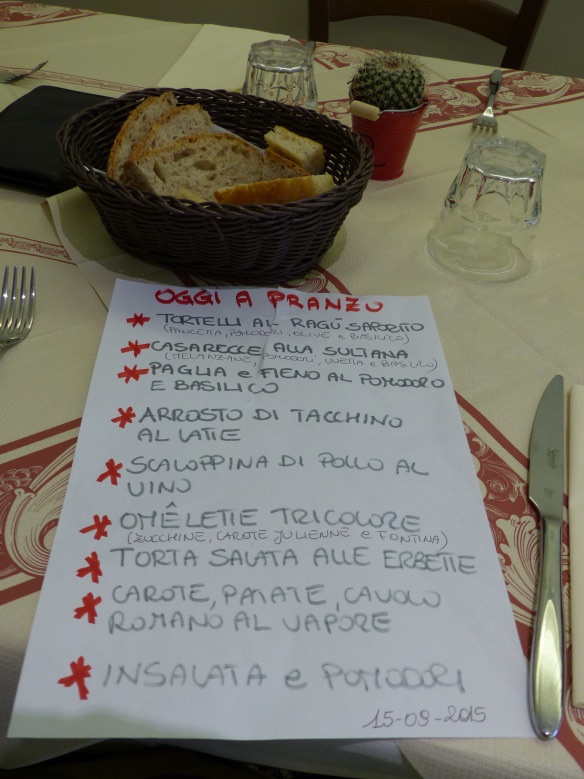 OGGI A PRANZO
* TORTELLI AL RAGÙ SAPORITO
(PANCETTA, POMODORI, OLIVE e BASILICO)
* CASARECCE ALLA SULTANA
(MELANZANE, POMODORI, UVETTA e BASILICO)
* PAGLIA e FIENO AL POMODORO
E BASILICO
* ARROSTO DI TACCHINO
AL LATTE
* SCALOPPINA DI POLLO AL
VINO
* OMÊLETTE TRICOLORE
(ZUCCHINE, CAROTE JULIENNE e FONTINA)
* TORTA SALATA ALLE ERBETTE
* CAROTE, PATATE, CAVOLO
ROMANO AL VAPORE
* INSALATA e POMODORI
15-09-2015